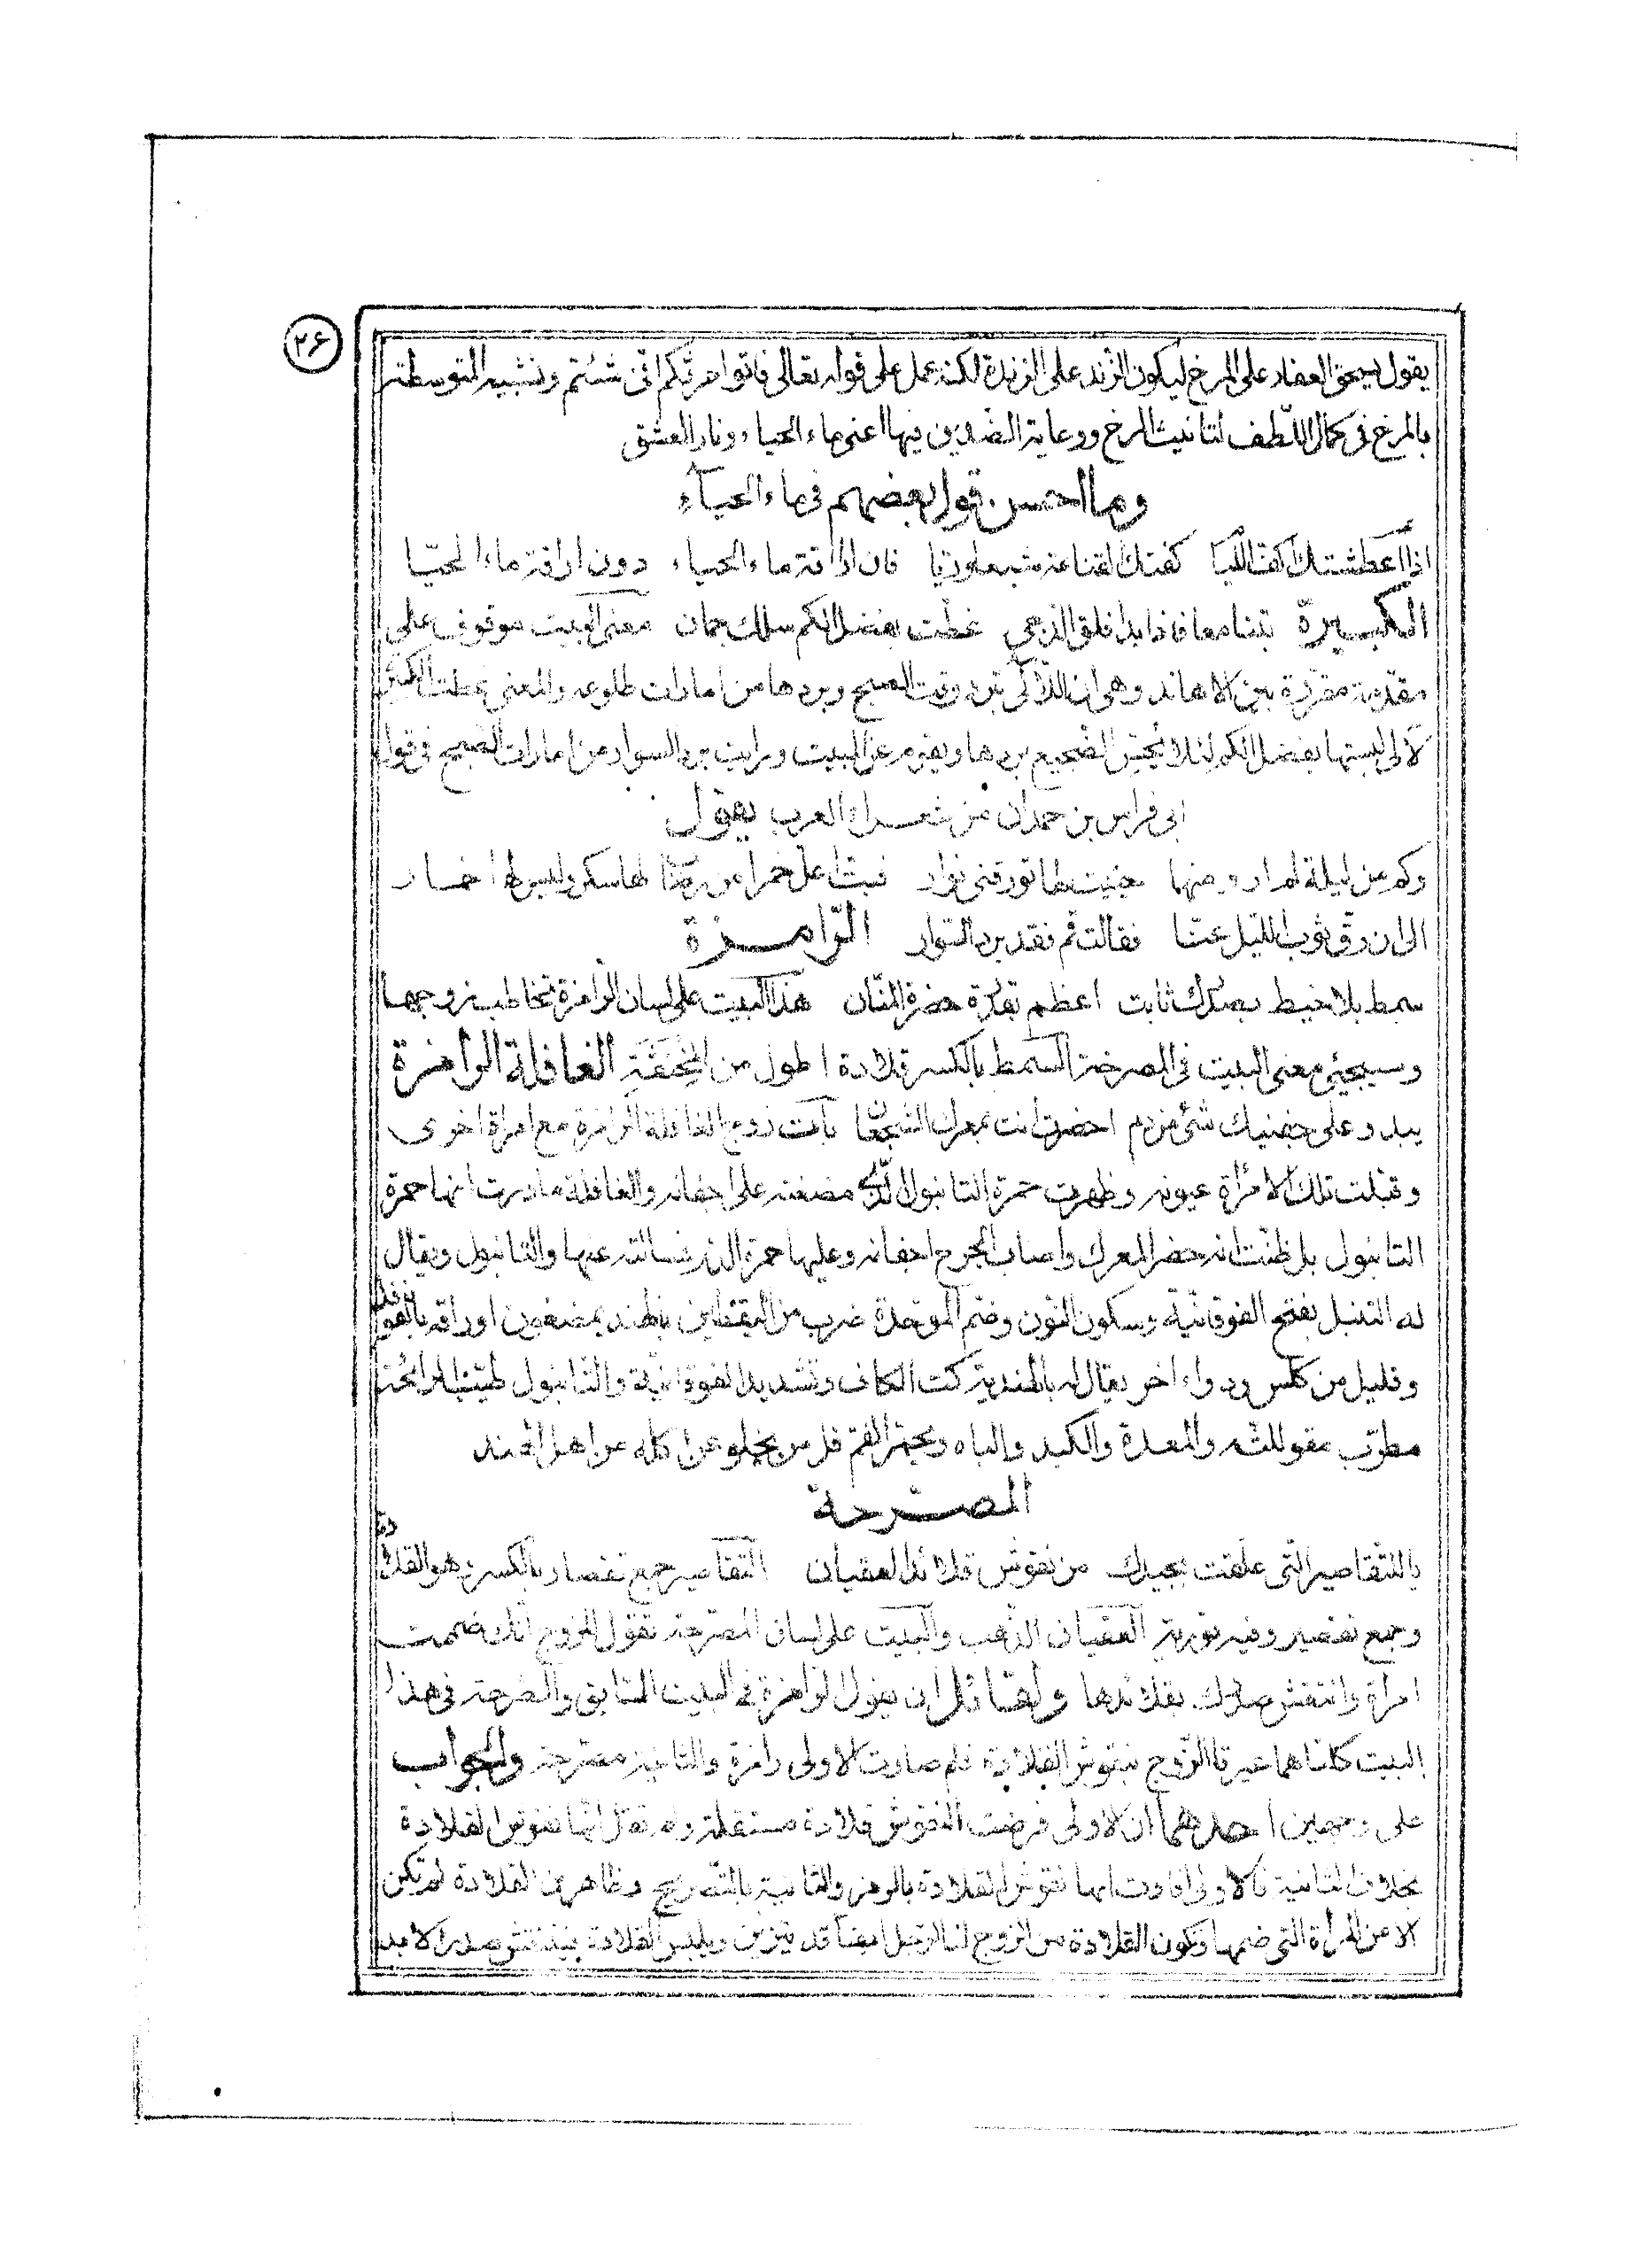 ٢٦
يقول يستحق العفار على المرخ ليكون الزند على الزندة لكنه عمل على قوله تعالى فاتوا حرثكم انى شئتم وتشبيه المتوسطة
بالمرخ فى كمال اللطف لتانيث المرخ ورعاية الضدين فيها اعنى ماء الحياء ونار العشق
وما احسن قول بعضهم فى ماء الحياء
اذا اعطشتك اكف اللئيا كفتك القناعة شبعا وريا فان اراقة ماء الحياء دون اراقة ماء المحيّا
الكبيرة بتنا معا فاذا بدا فلق الدجى غطت بفضل الكم سلك جمان معنى البيت موقوف على
مقدمة مقررة بين الاهاند وهى ان اللآلى تبرد وقت الصبح وبردها من امارات طلوعه والمعنى غطت الكبيرة
لآلى لبستها بفضل الكم لئلا يحس الضجيع بردها ويقوم عن المبيت ورايت برد السوار من امارات الصبح فى قول
ابى فراس بن حمدان من شعراء العرب يقول
وكم من ليلة لم ارو منها جنيت بها تورقنى نوار فبت اعل خمرا من رضاب لها سكر وليس لها خمار
الى ان رق ثوب الليل عنا فقالت قم فقد برد السوار الرّامزة
سمط بلا خيط بصدرك ثابت اعظم بقدرة حضرة المنّان هذا البيت على لسان الرامزة تخاطب زوجها
وسيجئ معنى البيت فى المصرحة السمط بالكسر قلادة اطول من المخنقة الغافلة الرامزة
يبدو على جفنيك شئ من دم احضرت انت بمعرك الشجعان بات زوج الغافلة الرامزة مع امراة اخرى
وقبلت تلك الامرأة عيونه وظهرت حمرة التانبول الذى مضغته على اجفانه والغافلة ما درت انها حمرة
التانبول بل ظنت انه حضر المعرك واصاب الجرح اجفانه وعليها حمرة الدم فسالته عنها والتانبول ويقال
له التنبل بفتح الفوقانية وسكون النون وضم الموحدة ضرب من اليقطين بالهند يمضغون اوراقه بالفوفل
وقليل من كلس ودواء اخر يقال له بالهندية كت الكاف وتشديد الفوقانية والتانبول طيب الرائحة
مطرب مقو للثه والمعدة والكبد والباه ومحمر الفم قل من يخلو عن اكله من اهل الهند
المصرحة
يا للتقاصير التى علقت بجيدك من نقوش قلائد العقيان التقاصير جمع تقصار بالكسر وهو القلادة
وجمع تقصير وفيه تورية العقيان الذهب والبيت على لسان المصرحة تقول للزوج انك ضممت
امراة وانتقش صدرك بقلائدها ولقائل ان يقول الرامزة فى البيت السابق والمصرحة فى هذا
البيت كلتاهما عيرتا الزوج بنقوش القلادة فلم صارت الاولى رامزة والثانية مصرحة والجواب
على وجهين احدهما ان الاولى فرضت النقوش قلادة مستقلة ولم تقل انها نقوش القلادة
بخلاف الثانية فالاولى افادت انها نقوش القلادة بالرمز والثانية بالتصريح وظاهر ان القلادة لم تكن
الا عن المرأة التى ضمها وتكون القلادة من الزوج لان الرجل ايضا قد يتزين ويلبس القلادة